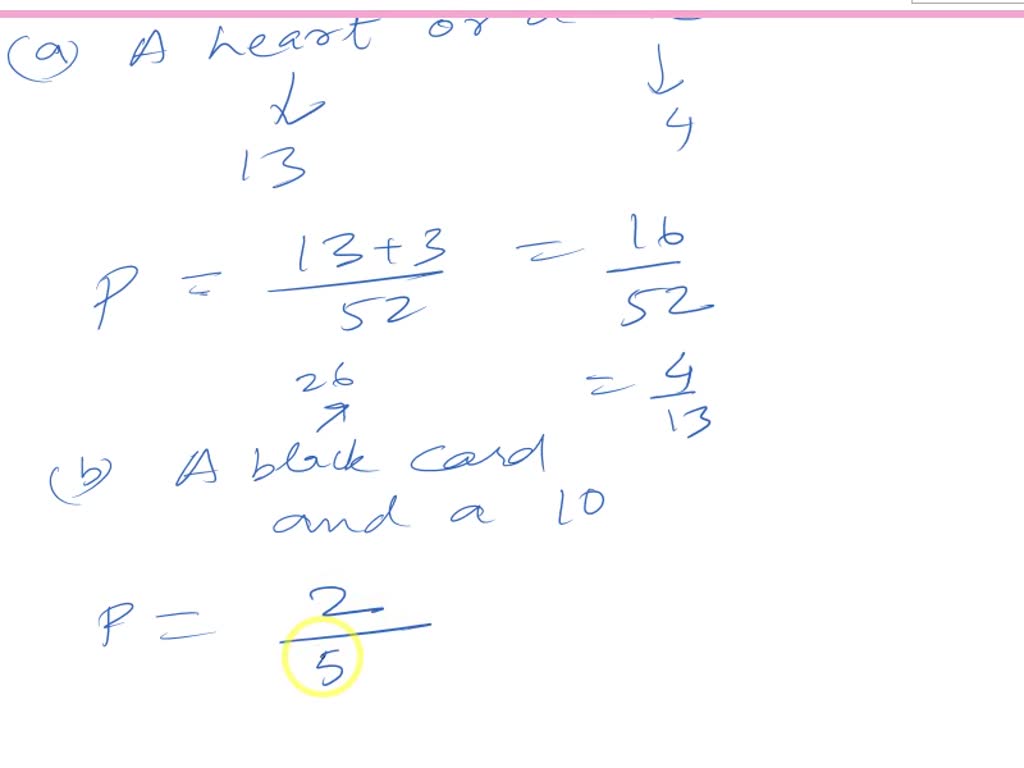 (a) A heart or
13 4
P = 13+3 / 52 = 16 / 52
26
= 4 / 13
(b) A black card
and a 10
P = 2 / 5